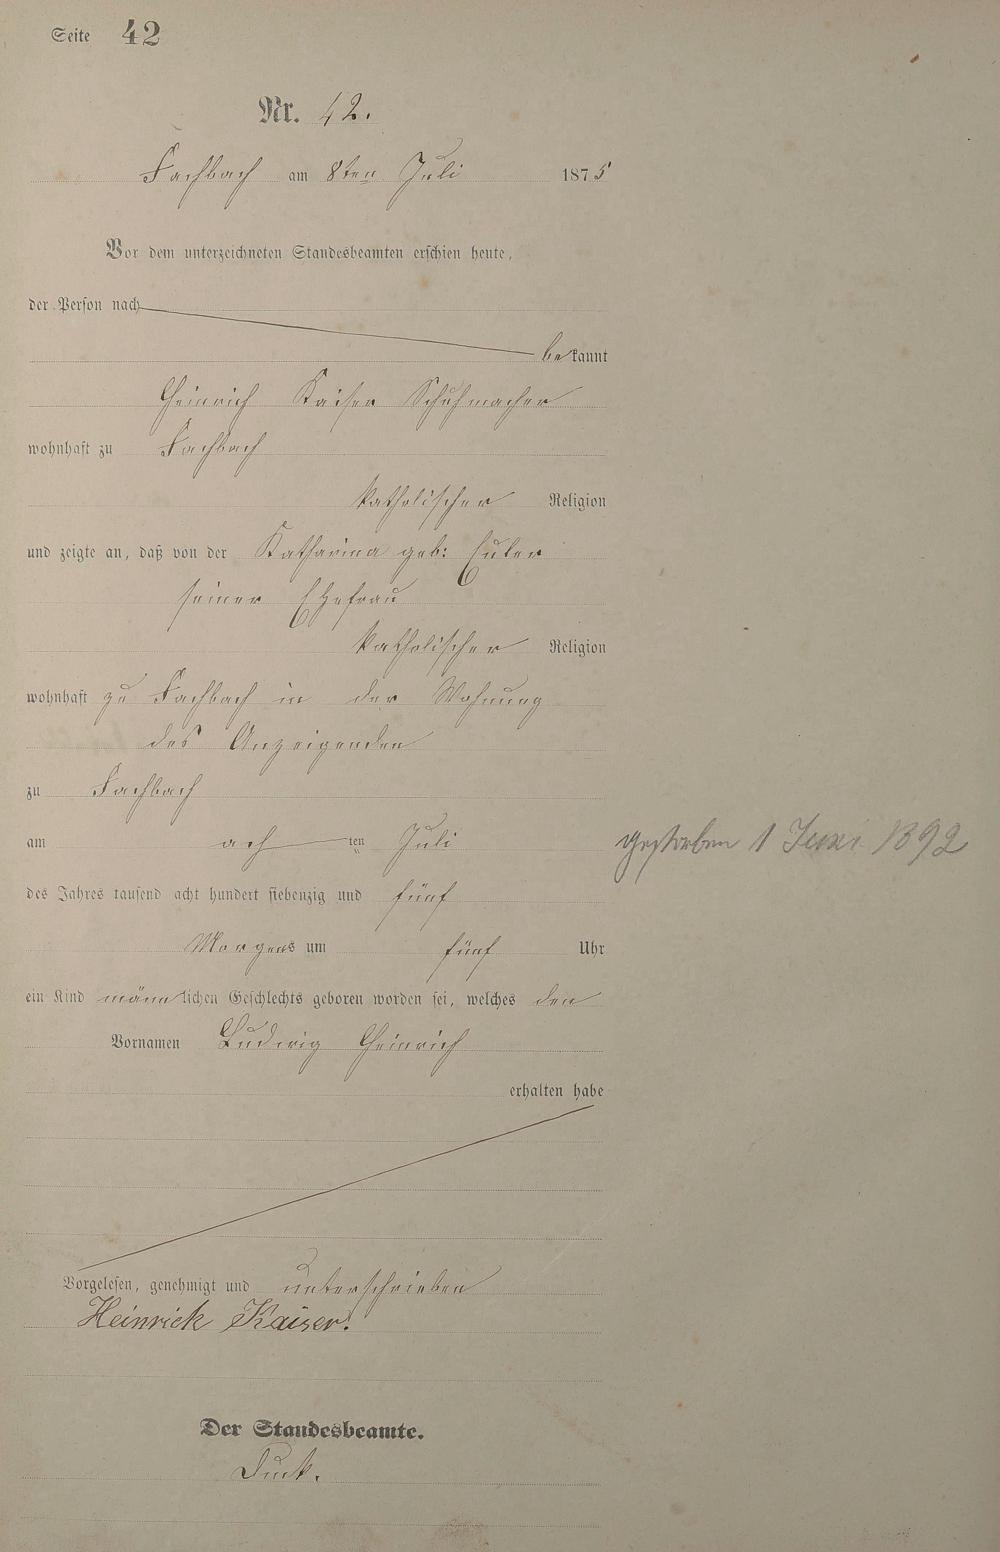 Seite 42
Nr. 42.
Fachbach am 8ten Juli 1875
Vor dem unterzeichneten Standesbeamten erschien heute,
der Person nach
bekannt
Heinrich Kaiser Schuhmacher
wohnhaft zu Fachbach
katholischer Religion
und zeigte an, daß von der Katharina geb: Euler
seiner Ehefrau
katholischer Religion
wohnhaft zu Fachbach in der Wohnung
des Anzeigenden
zu Fachbach
am ach ten Juli
gestorben 1 Juni 1892
des Jahres tausend acht hundert siebenzig und fünf
Morgens um fünf Uhr
ein Kind männlichen Geschlechts geboren worden sei, welches den
Vornamen Ludwig Heinrich
erhalten habe
Vorgelesen, genehmigt und unterschrieben
Heinrich Kaiser.
Der Standesbeamte.